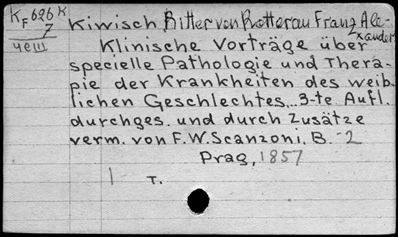 KF 626 K
7
чеш
Kiwisch Ritter von Rotterau Franz Ale-
xander
Klinische Vorträge über
specielle Pathologie und Thera-
pie der Krankheiten des weib-
lichen Geschlechtes...3-te Aufl.
durchges. und durch Zusätze
verm. von F.W. Scanzoni. B. - 2
Prag, 1857
1 - T.